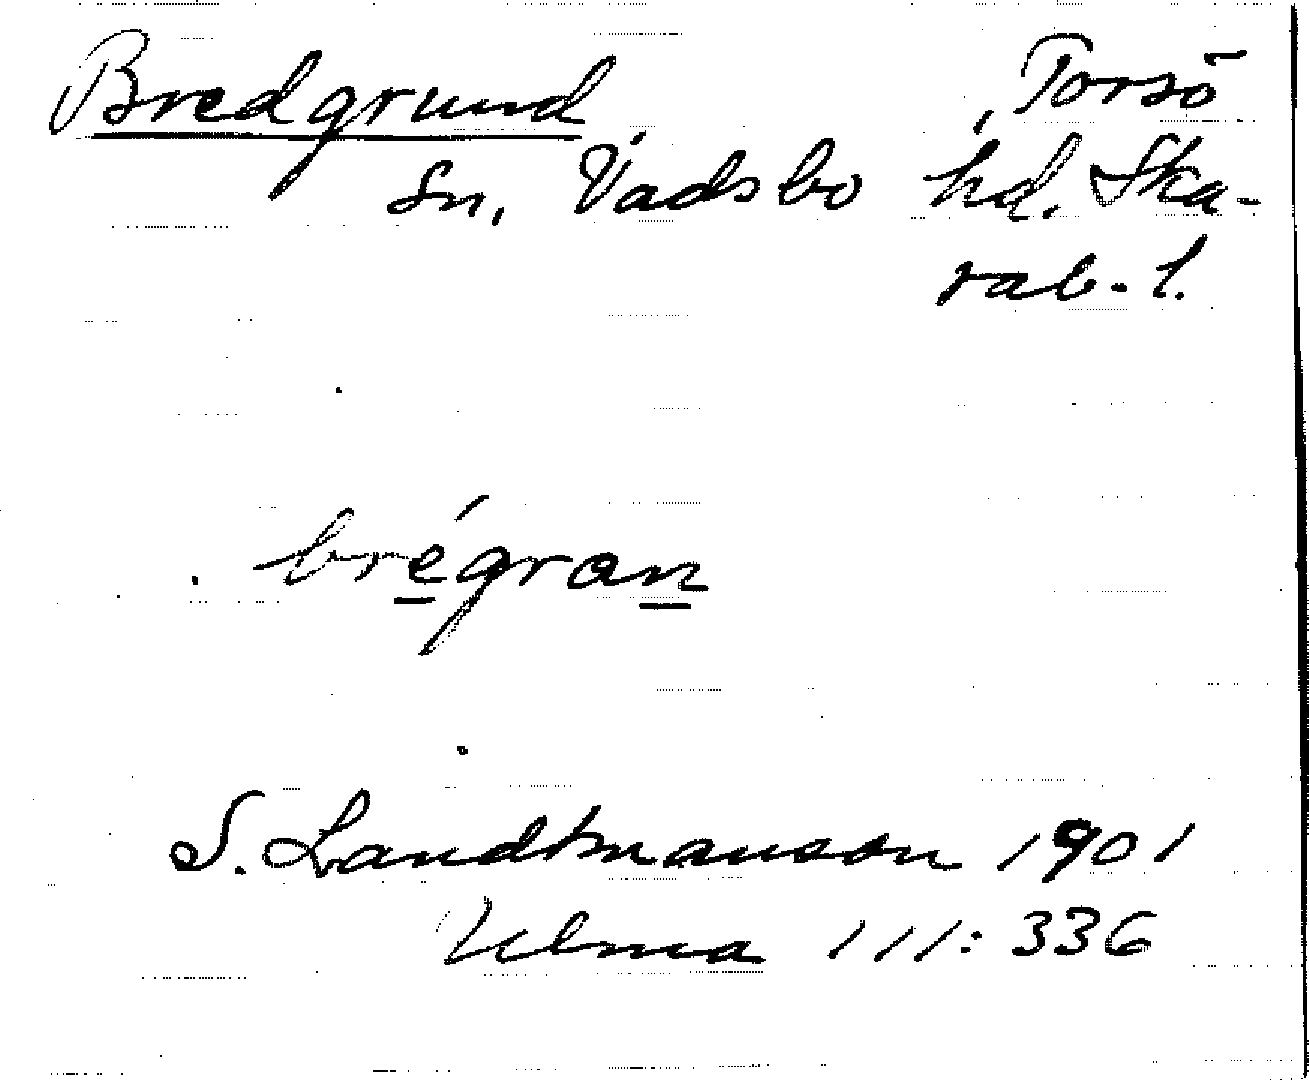 Bredgrund Torsö
sn. Vadsbo hd. Ska-
rab. l.
brégran
S. Landtmanson 1901
Ulma 111:336